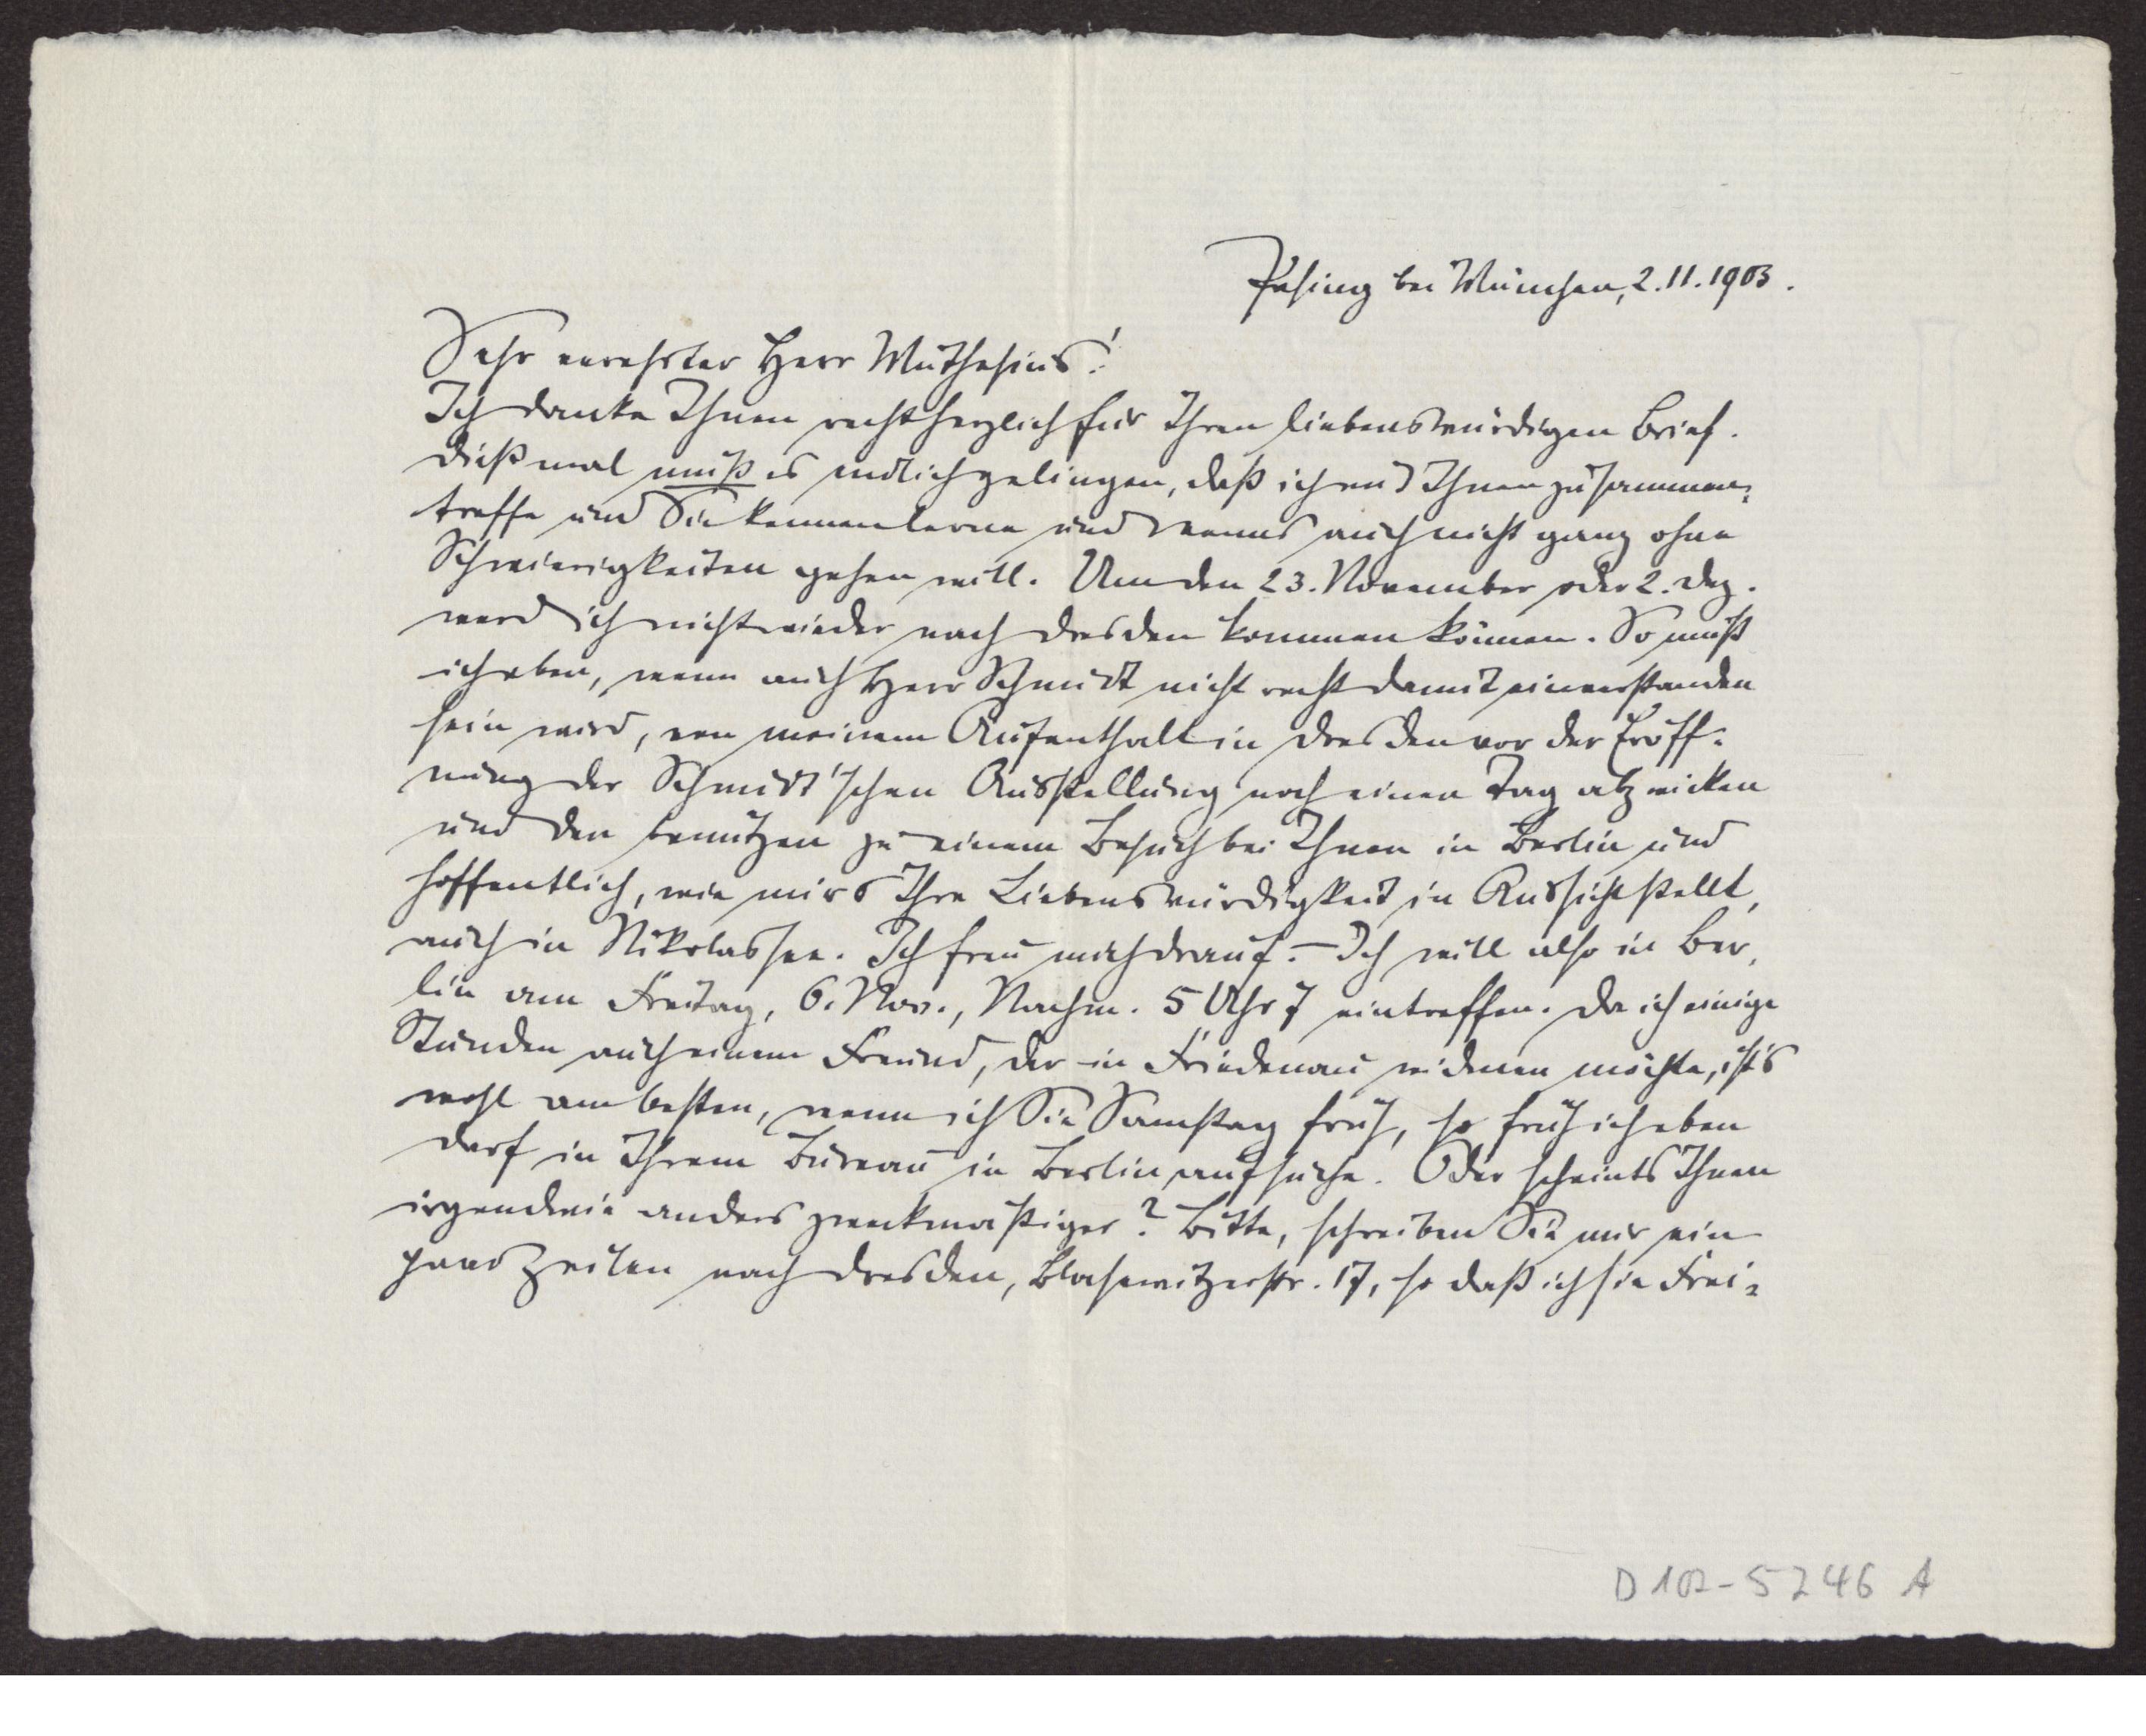 Pasing bei München, 2.11.1903.
Sehr verehrter Herr Muthesius!
Ich danke Ihnen recht herzlich für Ihren liebenswürdigen Brief.
Dießmal muß es endlich gelingen, daß ich mit Ihnen zusammen-
treffe und Sie kennen lerne und wenns auch nicht ganz ohne
Schwierigkeiten gehen will. Um den 23. November oder 2. Dez.
werd ich nicht wieder nach Dresden kommen können. So muß
ich eben, wenn auch Herr Schmidt nicht recht damit einverstanden
sein wird, von meinem Aufenthalt in Dresden vor der Eröff-
nung der Schmidt'schen Ausstellung noch einen Tag abzwicken
und den benützen zu einem Besuch bei Ihnen in Berlin und
hoffentlich, wie mirs Ihre Liebenswürdigkeit in Aussicht stellt,
auch in Nikolassee. Ich freu mich drauf. – Ich will also in Ber-
lin am Freitag, 6. Nov., Nachm. 5 Uhr 7 eintreffen. Da ich einige
Stunden auch einem Freund, der in Friedenau widmen möchte, ist's
wohl am besten, wenn ich Sie Samstag früh, so früh ich eben
darf in Ihrem Bureau in Berlin aufsuche. Oder scheints Ihnen
irgendwie anders zweckmäßiger? Bitte, schreiben Sie mir ein
paar Zeilen nach Dresden, Blasewitzerstr. 17, so daß ich sie Frei-
D 102-5246 A